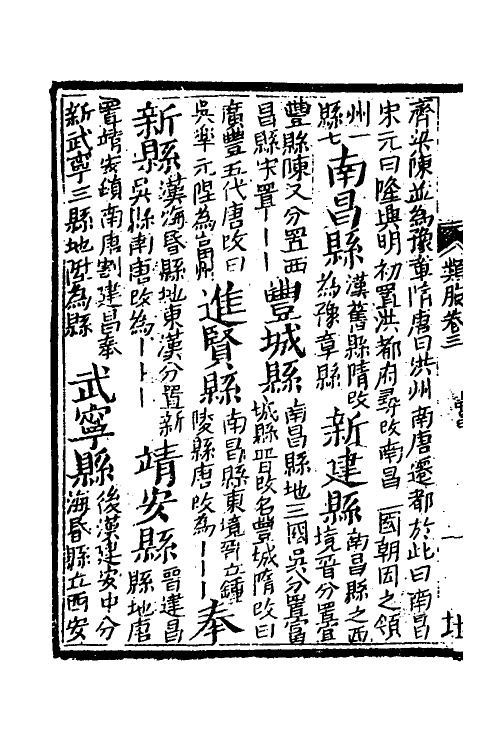 齊梁陳並為豫章隋唐曰洪州南唐遷都於此曰南昌
宋元曰隆興明初置洪都府尋改南昌 國朝因之領
州一
縣七
南昌縣
漢舊縣隋改
為豫章縣
新建縣
南昌縣之西
境晉分置宜
豐縣陳又分置西
昌縣宋置〡〡
豐城縣
南昌縣地三國吳分置富
城縣晉改名豐城隋改曰
廣豐五代唐改曰
吳臯元陞為富州
進賢縣
南昌縣東境晉立鍾
陵縣唐改為〡〡〡
奉
新縣
漢海昏縣地東漢分置新
吳縣南唐改為〡〡〡
靖安縣
晉建昌
縣地唐
置靖安鎮南唐割建昌奉
新武寧三縣地陞為縣
武寧縣
後漢建安中分
海昏縣立西安
類腋卷三
一
地